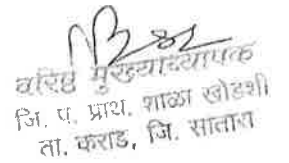 वरिष्ठ मुख्याध्यापक
जि. प. प्राथ. शाळा खोडशी
ता. कराड, जि. सातारा